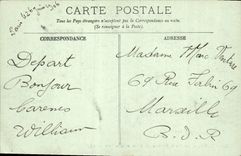 CARTE POSTALE
Tous les Pays étrangers n'acceptent pas la Correspondance au recto.
(Se renseigner à la Poste)
CORRESPONDANCE
ADRESSE
Depart
Bonjour
Carenes
William
Madame Marc
69 Rue 69
Marseille
B. D. R